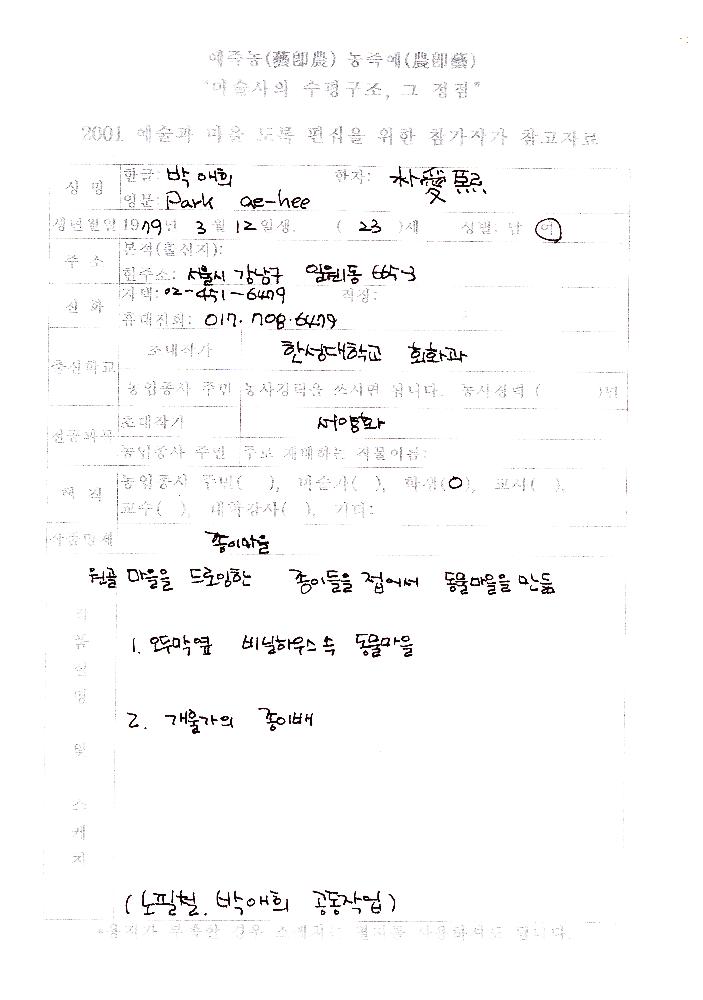 예즉농(藝卽農) 농즉예(農卽藝)
"미술사의 수평구조, 그 정점"
2001. 예술과 마을 도록 편집을 위한 참가작가 참고자료
성 명 한글: 박 애희 한자: 朴愛熙
영문: Park ae-hee
생년월일 1979년 3월 12일생. ( 23 )세 성별: 남 여
주 소 본적(출신지):
현주소: 서울시 강남구 일원1동 665-3
전 화 자택: 02-451-6479 직장:
휴대전화: 017. 708. 6479
출신학교 초대작가 한성대학교 회화과
농업종사 주민 농사경력을 쓰시면 됩니다. 농사경력 ( )년
전공과목 초대작가 서양화
농업종사 주민 주로 재배하는 작물이름:
현 직 농업종사 주민( ), 미술가( ), 학생(O), 교사( ),
교수( ), 대학강사( ), 기타:
작품명제 종이마을
원골 마을을 드로잉한 종이들을 접어서 동물마을을 만듦
작품설명 및 스케치
1. 오두막옆 비닐하우스 속 동물마을
2. 개울가의 종이배
(노필철, 박애희 공동작업)
*용지가 부족한 경우 스케치는 별지를 사용하셔도 됩니다.